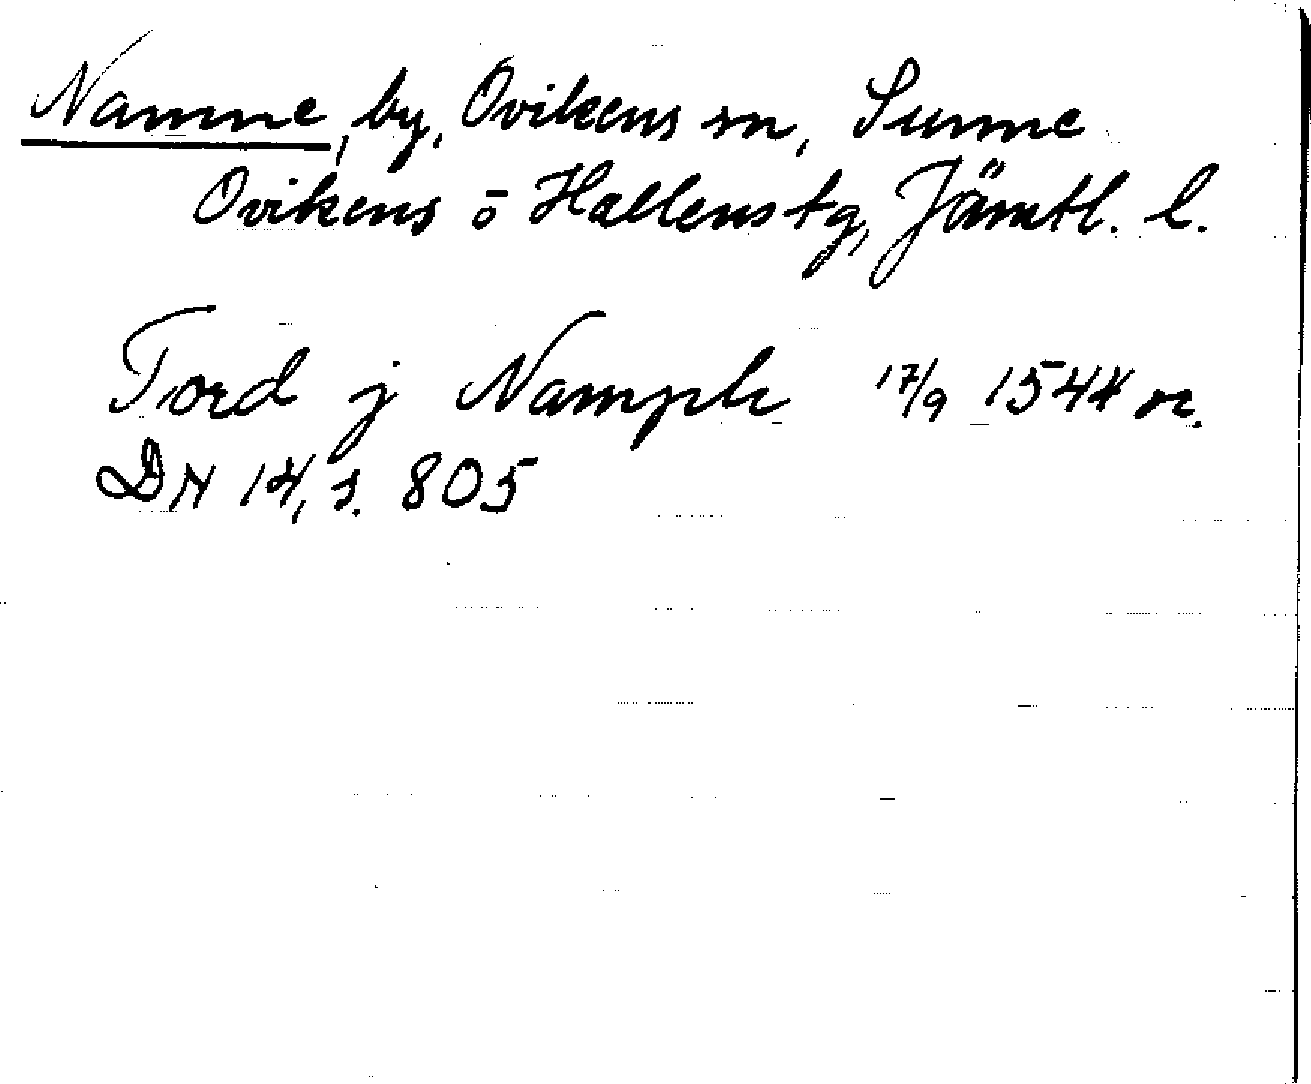 Namne, by, Ovikens sn, Sunne
Ovikens o Hallens tg, Jämtl. l.
Tord j Nample 17/9 1544 or.
DN 14, s. 805